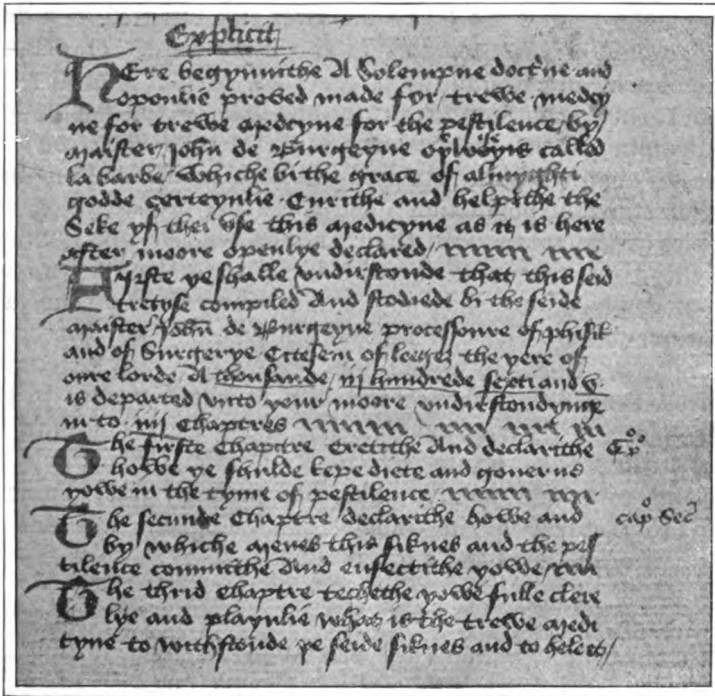 Explicit
HEre begynnithe A Solempne doctrine and
oponlie proved made for trewe medicy
ne for trewe medcyne for the pestilence by
maister John de Burgeyne oþerwyis called
la barbe Whiche bi the grace of almyghti
godde certeynlie Curithe and helpithe the
Seke yf thei vse this medicyne as it is here
after moore openlye declared
Firste ye schalle vndirstonde that this seid
tretyse compiled And stodiede bi the seide
maister John de Burgeyne processoure of phisik
and of Surgerye Citesein of the yere of
oure lorde A thousande iij hundrede sexti and v
is departed vnto your moore vndirstondynge
in to iiij Chaptres
The firste Chaptre tretithe And declarithe Cpo
howe ye schulde kepe diete and governe
yowe in the tyme of pestilence
The secunde Chaptre declarithe howe and capo Sec
by whiche menes this siknes and the pes
tilence commithe And enfectithe yowe
The thrid Chaptre techethe yowe fulle clere
lye and playnlie what is the trewe medi
cyne to withstonde þe seide siknes and to hele it